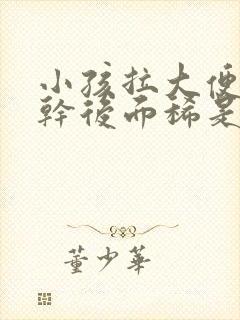 小孩拉大便
幹後而稀是
董少華